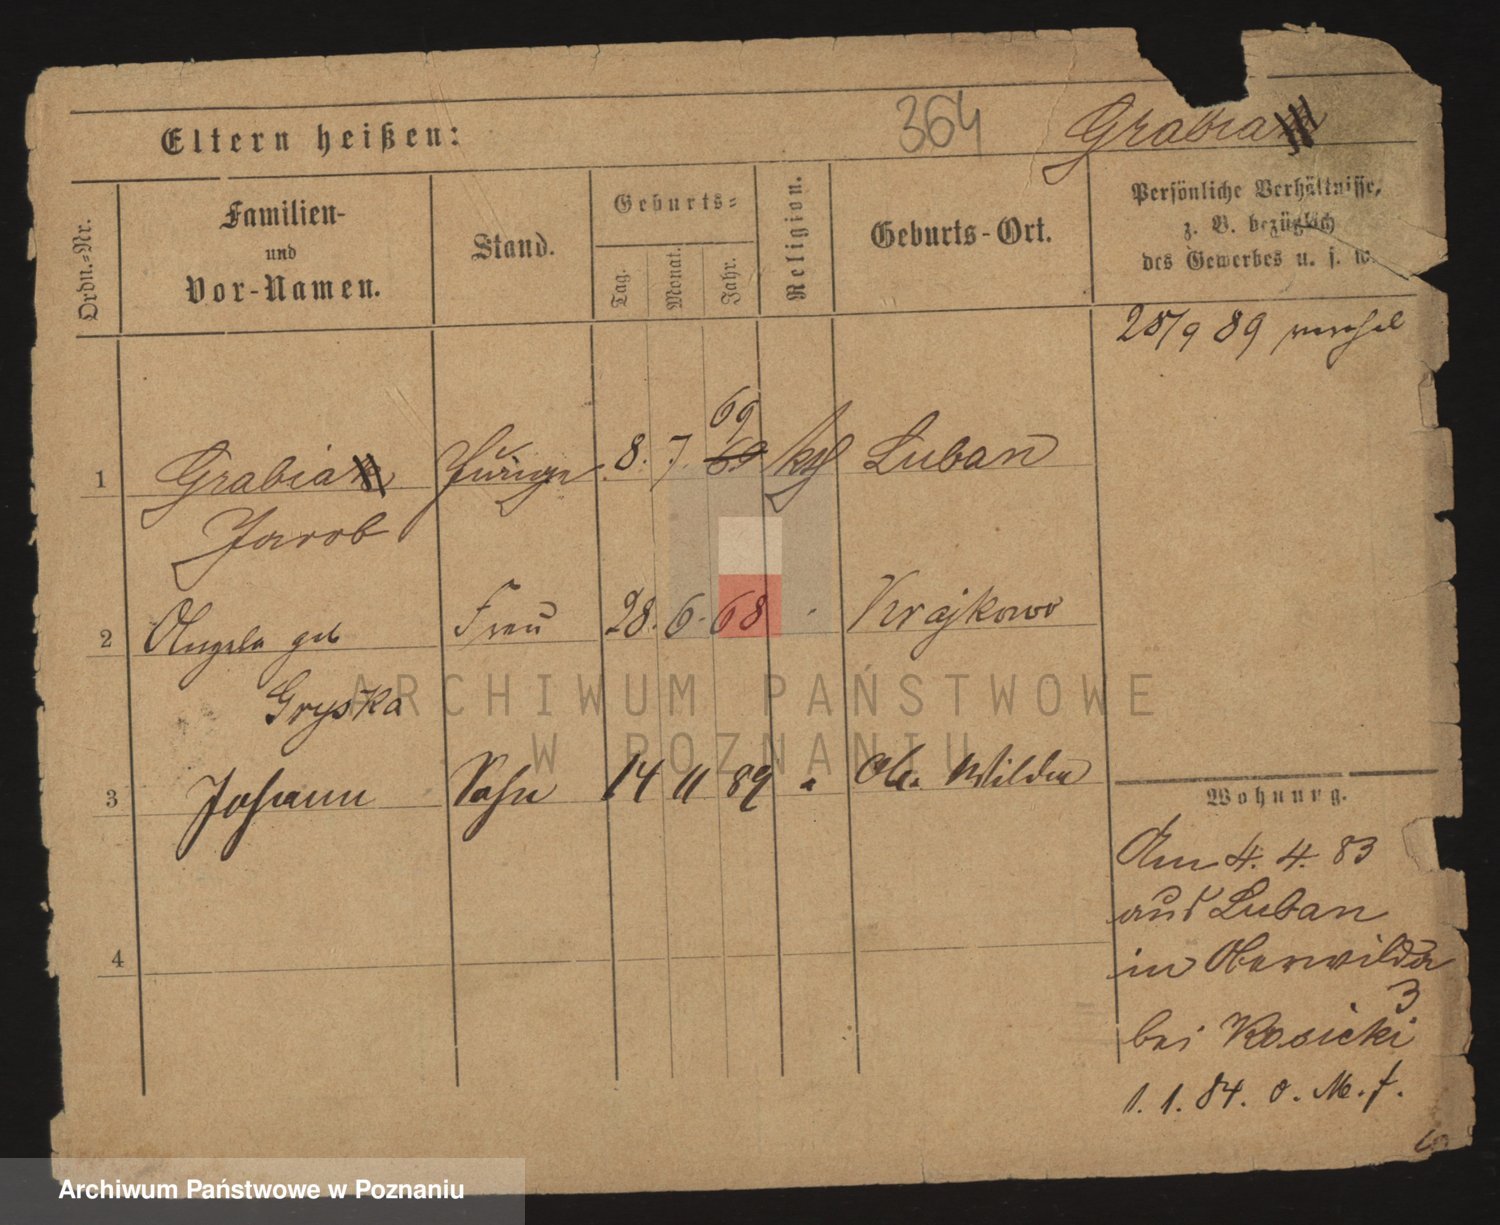 Eltern heißen:
364
Grabia
Ordn.-Nr.
Familien-
und
Vor-Namen.
Stand.
Geburts-
Tag.
Monat.
Jahr.
Religion.
Geburts-Ort.
Persönliche Verhältnisse,
z. B. bezüglich
des Gewerbes u. s. w.
28/9 89
1 Grabia 8. 7. 69 kth Luban
Jacob
2 Angela geb Frau 28. 6. 68 Krajkowo
Gryska
3 Johann Sohn 14 11 89 Ob. Wilda
4
Wohnung.
Am 4. 4. 83
aus Luban
in Oberwilda
3
bei Kosicki
1. 1. 84. o. M. f.
ARCHIWUM PAŃSTWOWE
W POZNANIU
Archiwum Państwowe w Poznaniu